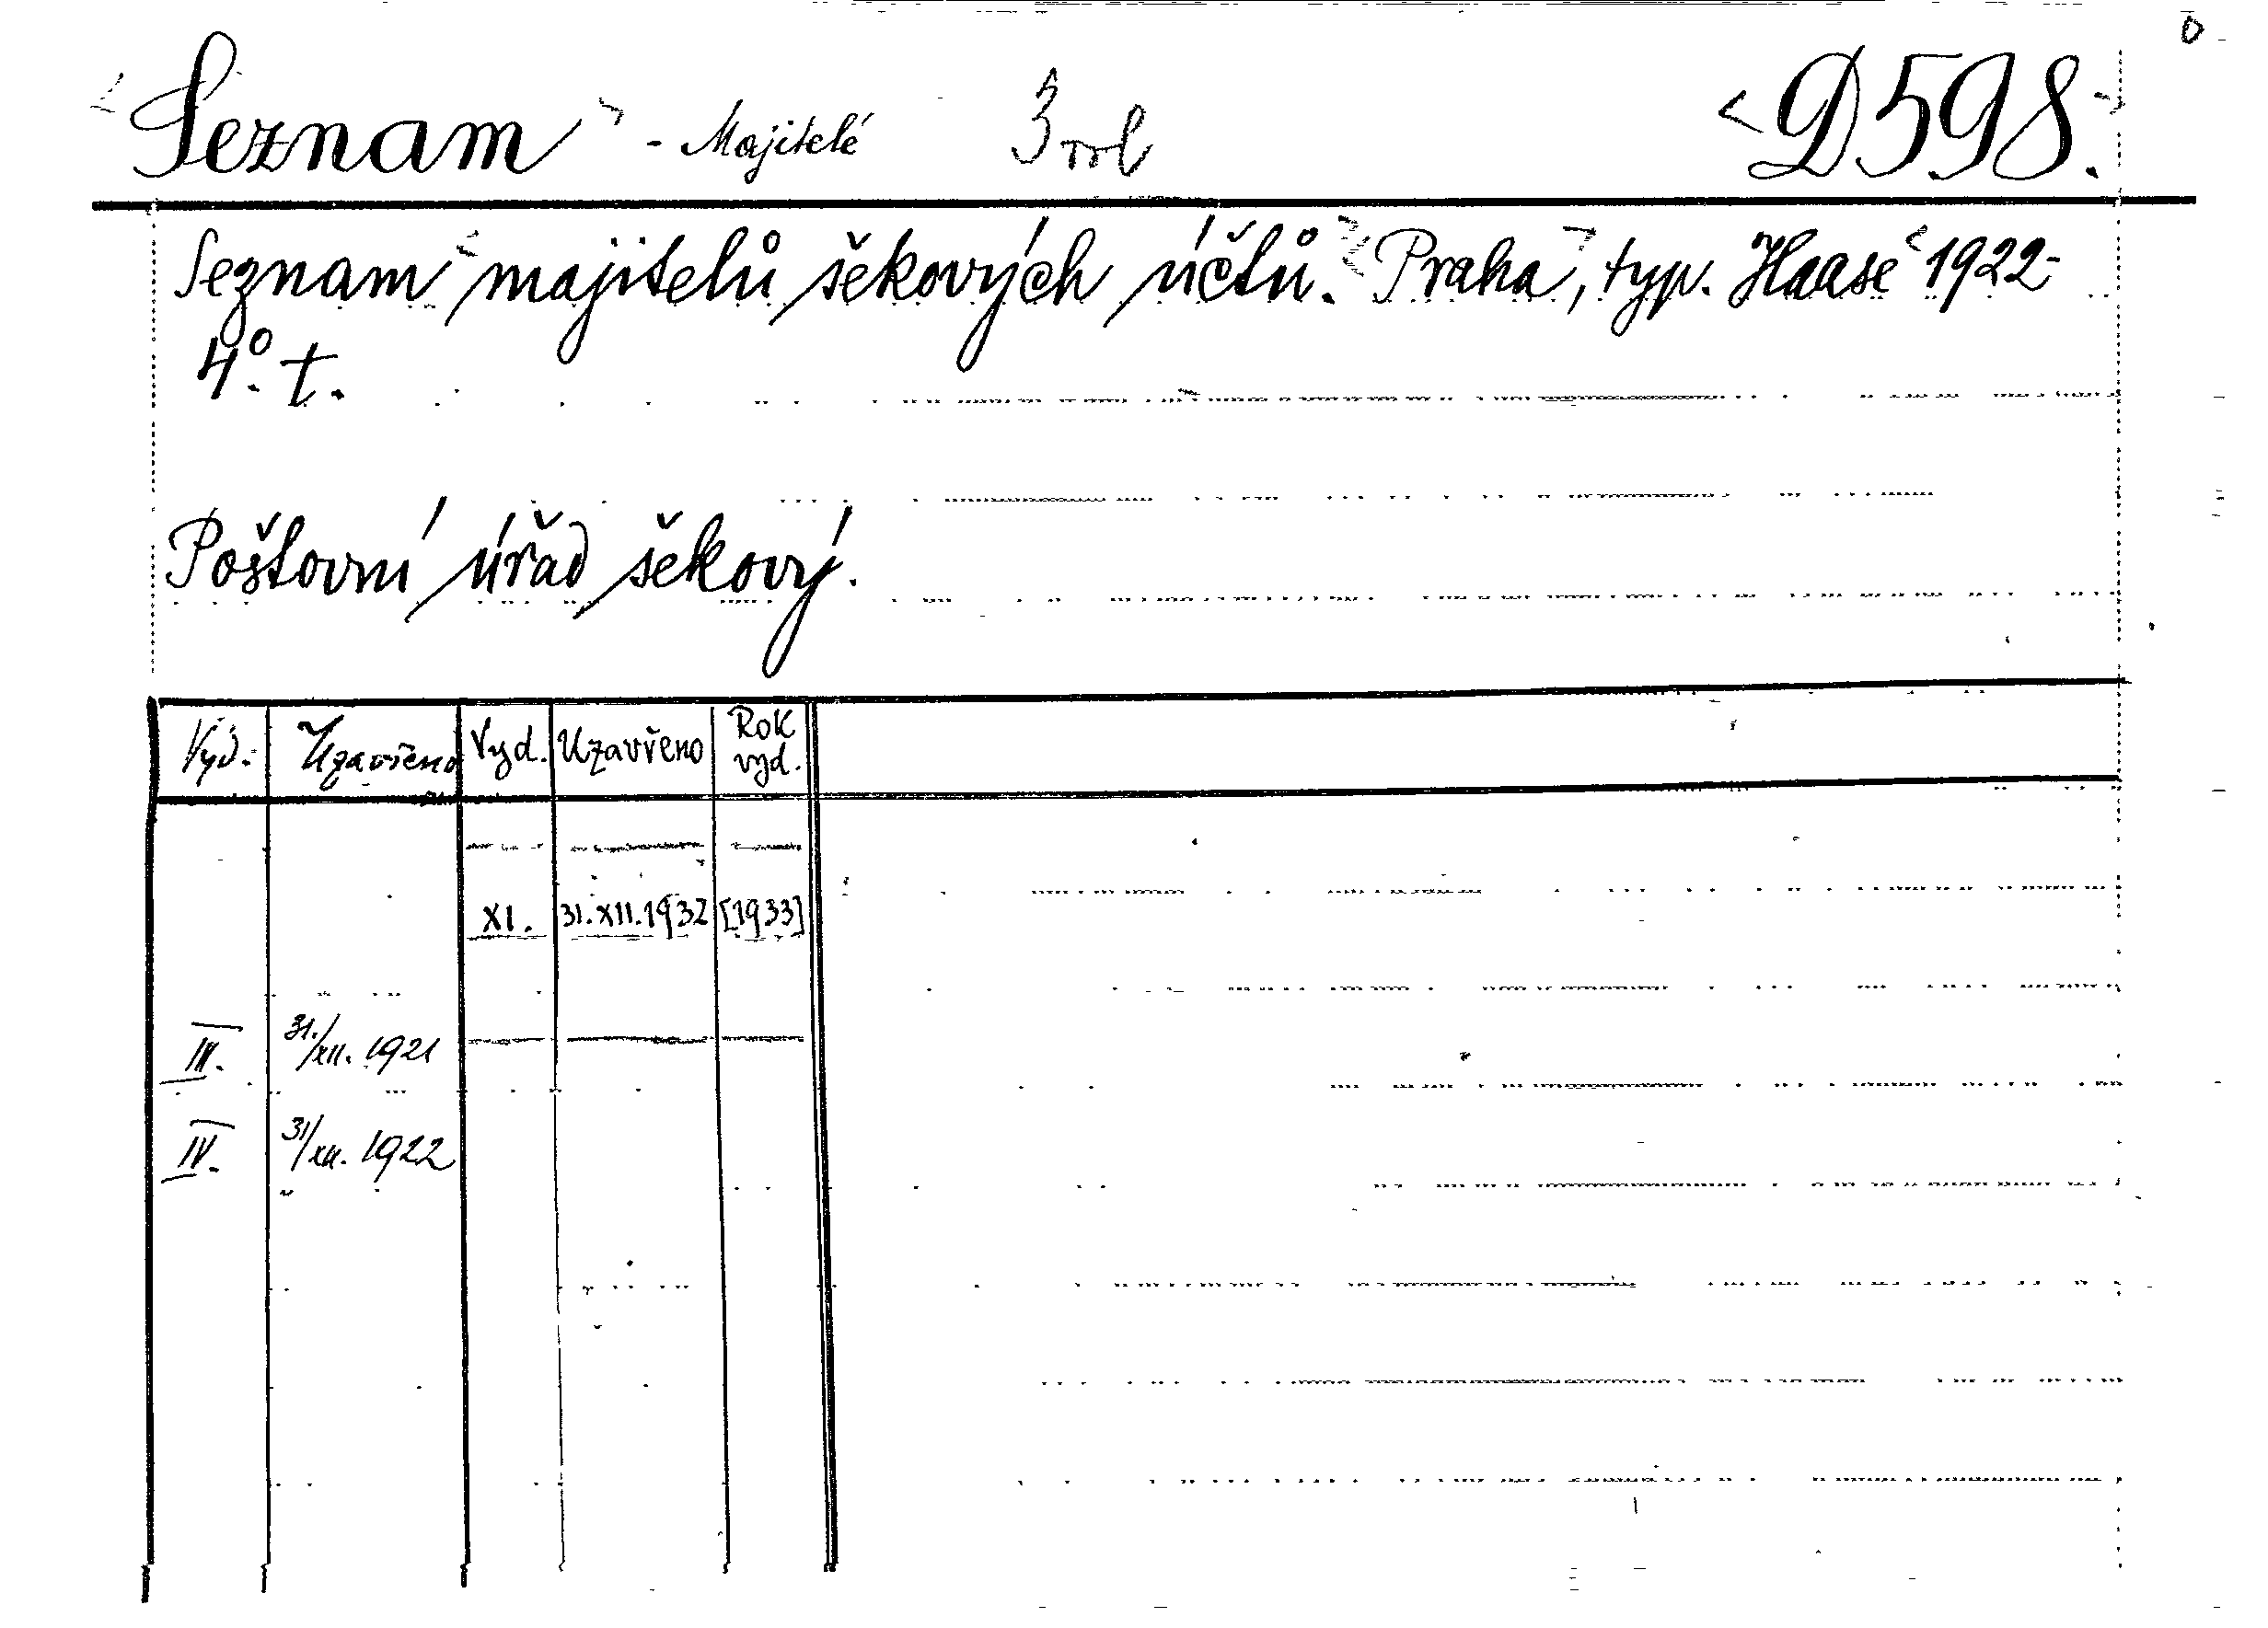 Seznam - Majitelé D 598.
Seznam majitelů šekových účtů. Praha, typ. Haase 1922-
4°. t.
Poštovní úřad šekový.
Vyd. Uzavřeno Vyd. Uzavřeno Rok vyd.
XI. 31.XII.1932 [1933]
III. 31./XII. 1921
IV. 31/XII. 1922